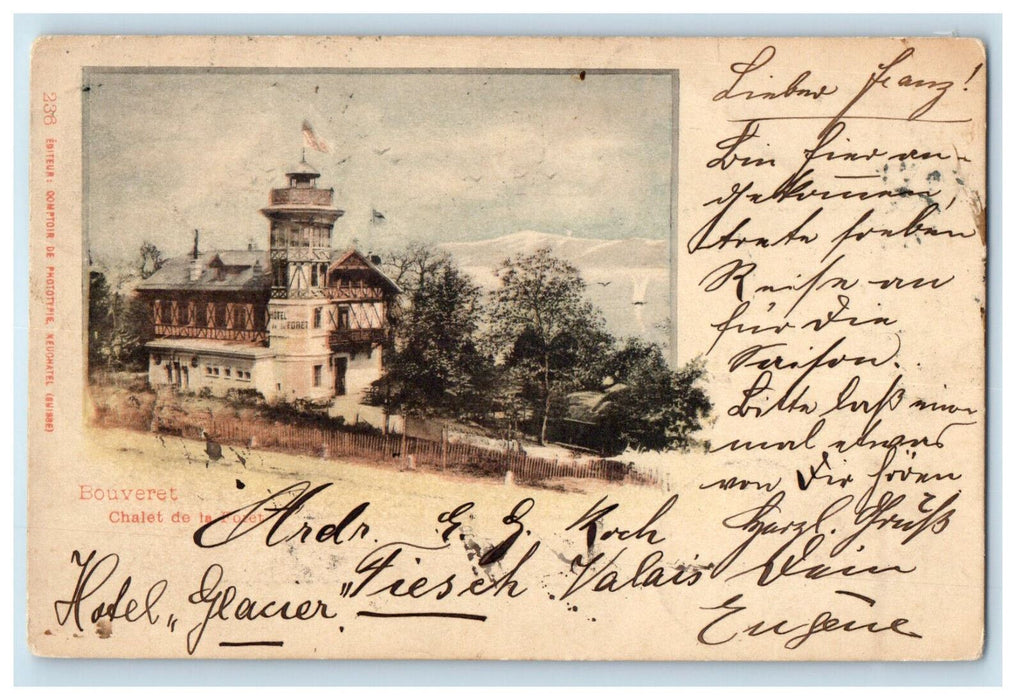 Lieber Franz!
Bin hier an-
gekommen,
trete soeben
Reise an
für die
Saison.
Bitte laß ein-
mal etwas
von Dir hören
Herzl. Gruß
Dein
Eugène
HOTEL
de la FORET
236 ÉDITEUR: COMPTOIR DE PHOTOTYPIE, NEUCHATEL (SUISSE)
Bouveret
Chalet de la Forêt
Ardr. E. E. Koch
Hotel „Glacier" Fiesch Valais